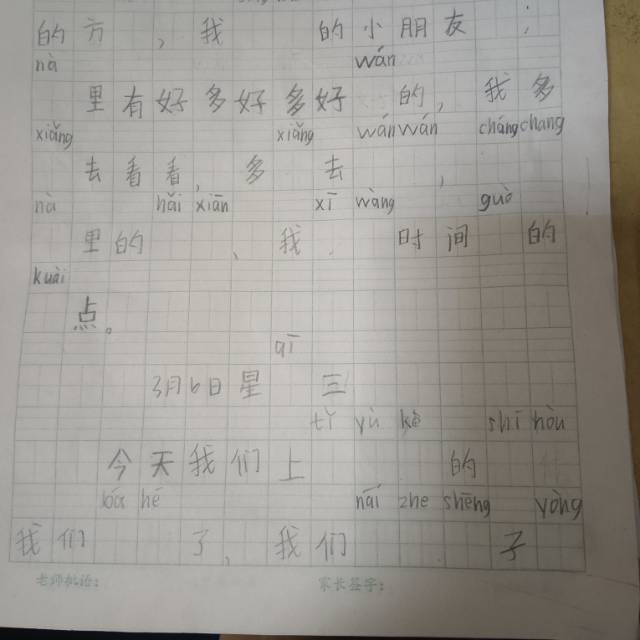 的方，我 的小朋友；
nà wán
里有好多好多好 的，我多
xiǎng xiǎng wánwán chángchang
去看看，多 去 ，
nà hǎi xiān xī wàng guò
里的 、我 时间 的
kuài
点。
qī
3月6日星 三
tǐ yù kè shí hòu
今天我们上 的
bá hé nǎi zhe shēng yòng
我们 了，我们 子
老师批语： 家长签字：